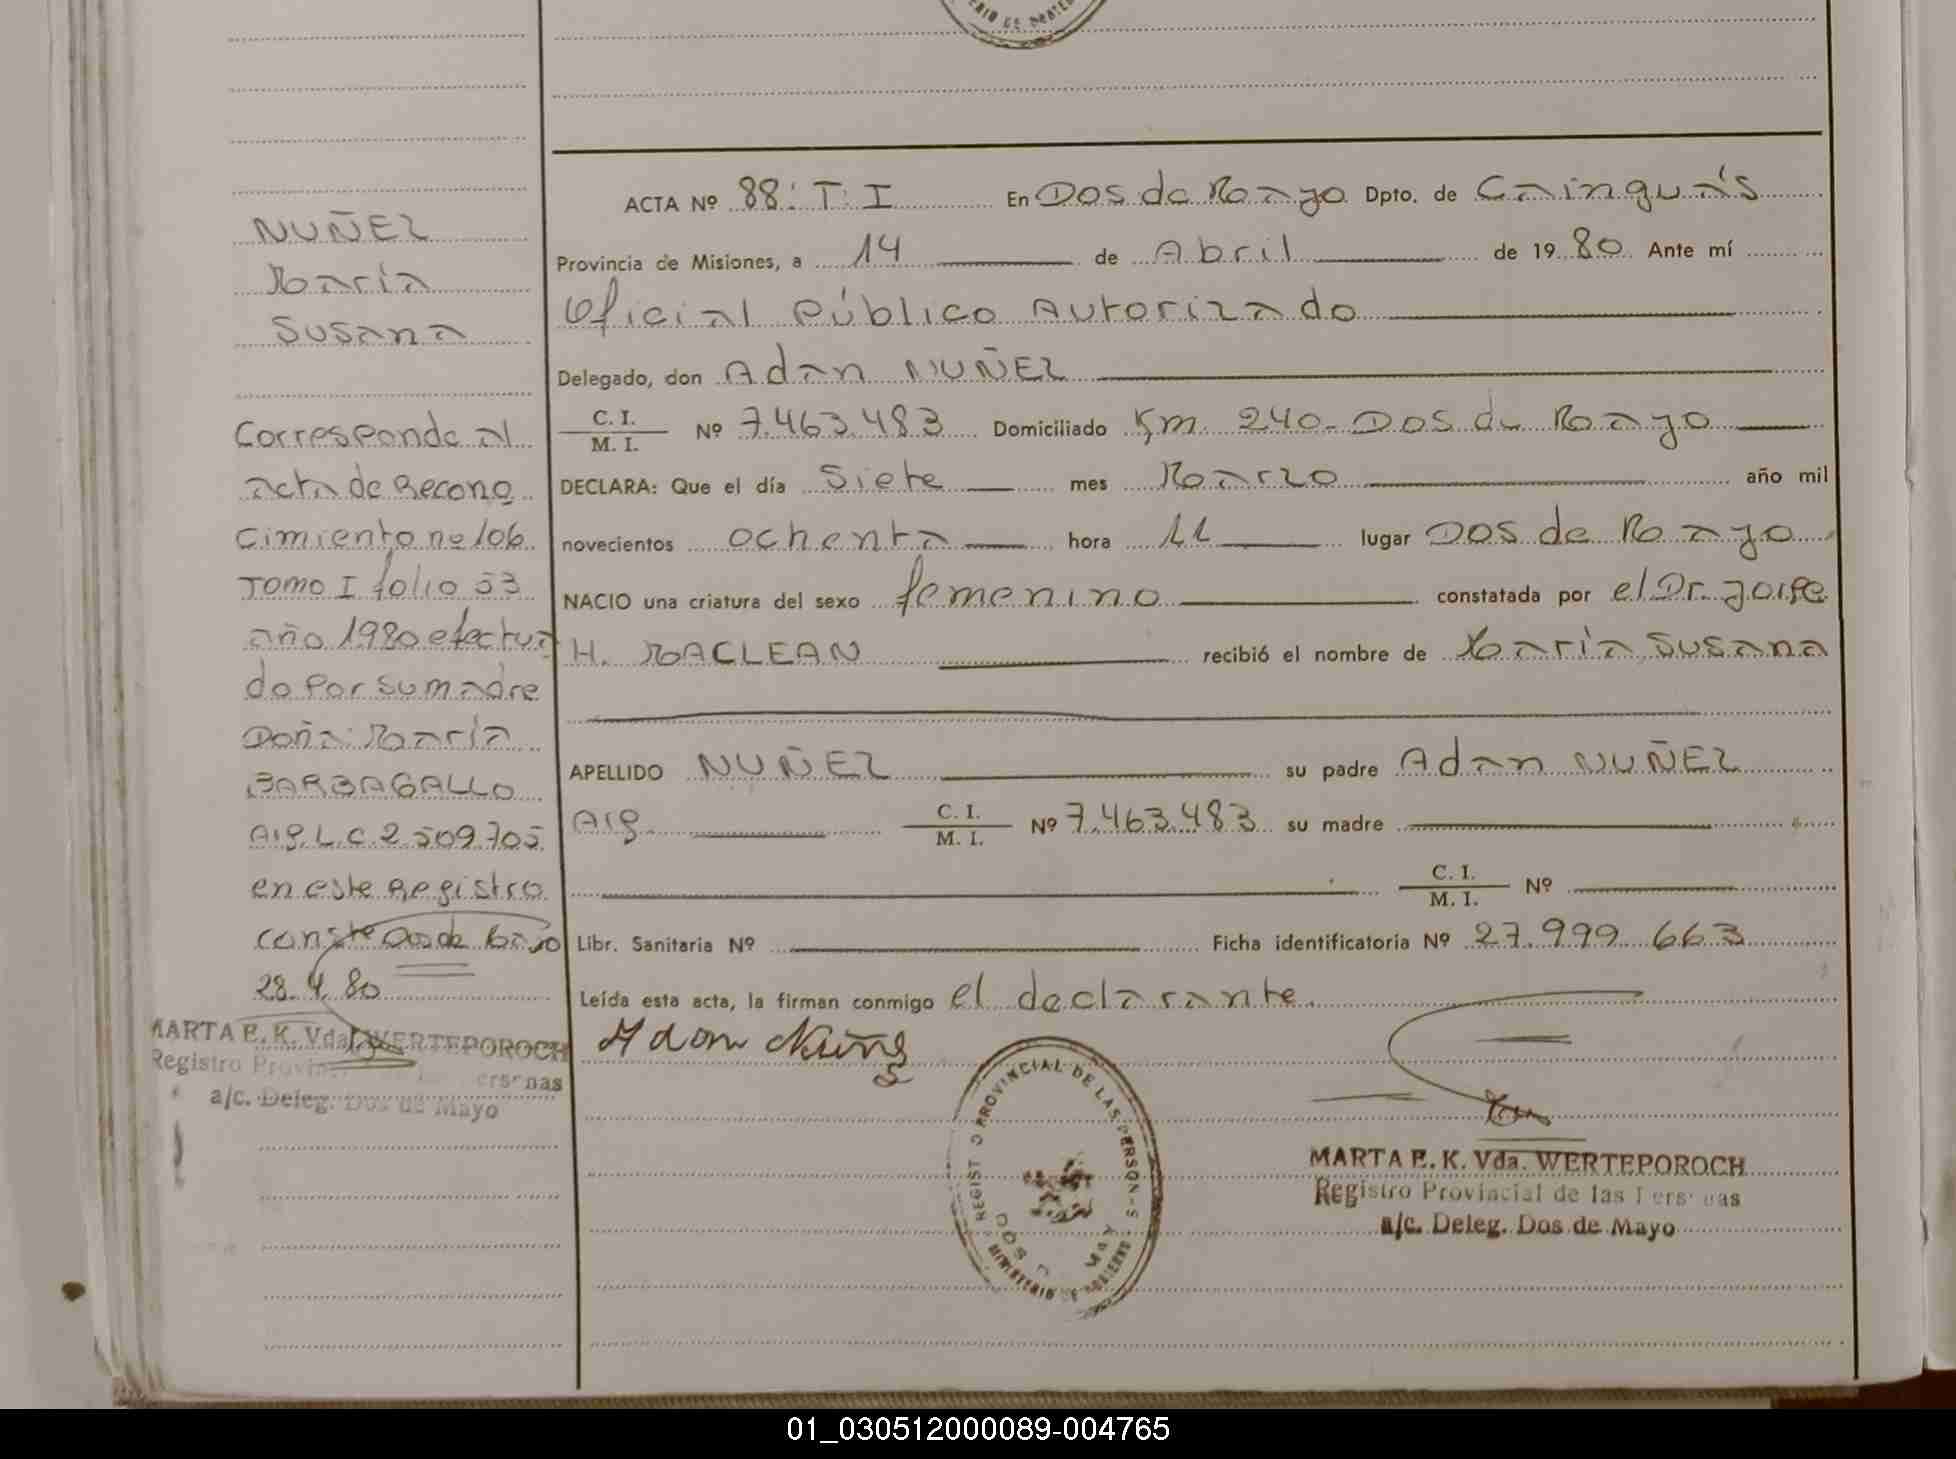 ACTA Nº 88: T: I En Dos de Mayo Dpto. de Cainguás
Provincia de Misiones, a 14 de Abril de 1980 Ante mí
Oficial Público Autorizado
Delegado, don Adan NUÑEZ
C. I.
M. I. Nº 7.463.483 Domiciliado Km. 240- Dos de Mayo
DECLARA: Que el día Siete mes Marzo año mil
novecientos ochenta hora 11 lugar Dos de Mayo
NACIO una criatura del sexo femenino constatada por el Dr. Jorge
H. MACLEAN recibió el nombre de María Susana
APELLIDO NUÑEZ su padre Adan NUÑEZ
Arg. C. I.
M. I. Nº 7.463.483 su madre
C. I.
M. I. Nº
Libr. Sanitaria Nº Ficha identificatoria Nº 27.999.663
Leída esta acta, la firman conmigo el declarante.
Adan Nuñes
REGISTRO PROVINCIAL DE LAS PERSONAS
MARTA E. K. Vda. WERTEPOROCH
Registro Provincial de las Personas
a/c. Deleg. Dos de Mayo
NUÑEZ
María
Susana
Corresponde al
acta de Recono
cimiento nº 106
Tomo I folio 53
año 1980 efectua
do Por su madre
Doña: María
BARBAGALLO
Arg. L.C. 2.509.705
en este Registro
conste Dos de Mayo
28.4.80
MARTA E. K. Vda. WERTEPOROCH
Registro Provin ersonas
a/c. Deleg. Dos de Mayo
01_030512000089-004765